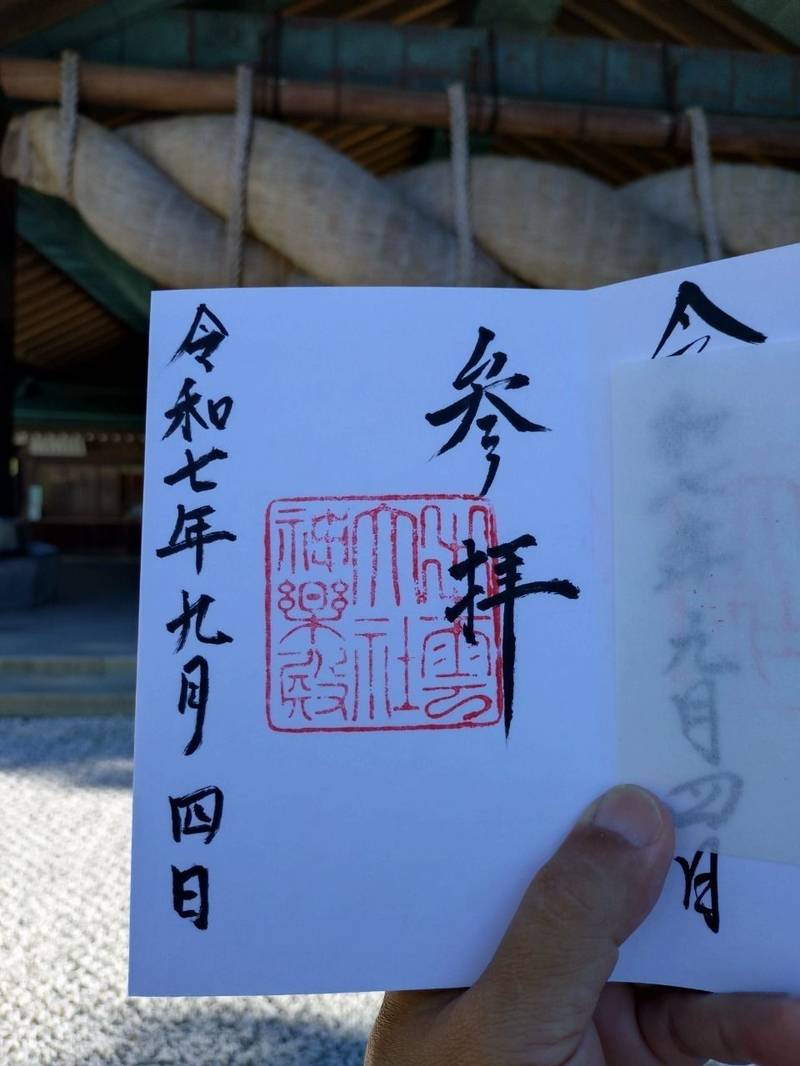 令和七年九月四日
参拝
出雲
大社
神樂殿
令和七年九月四日